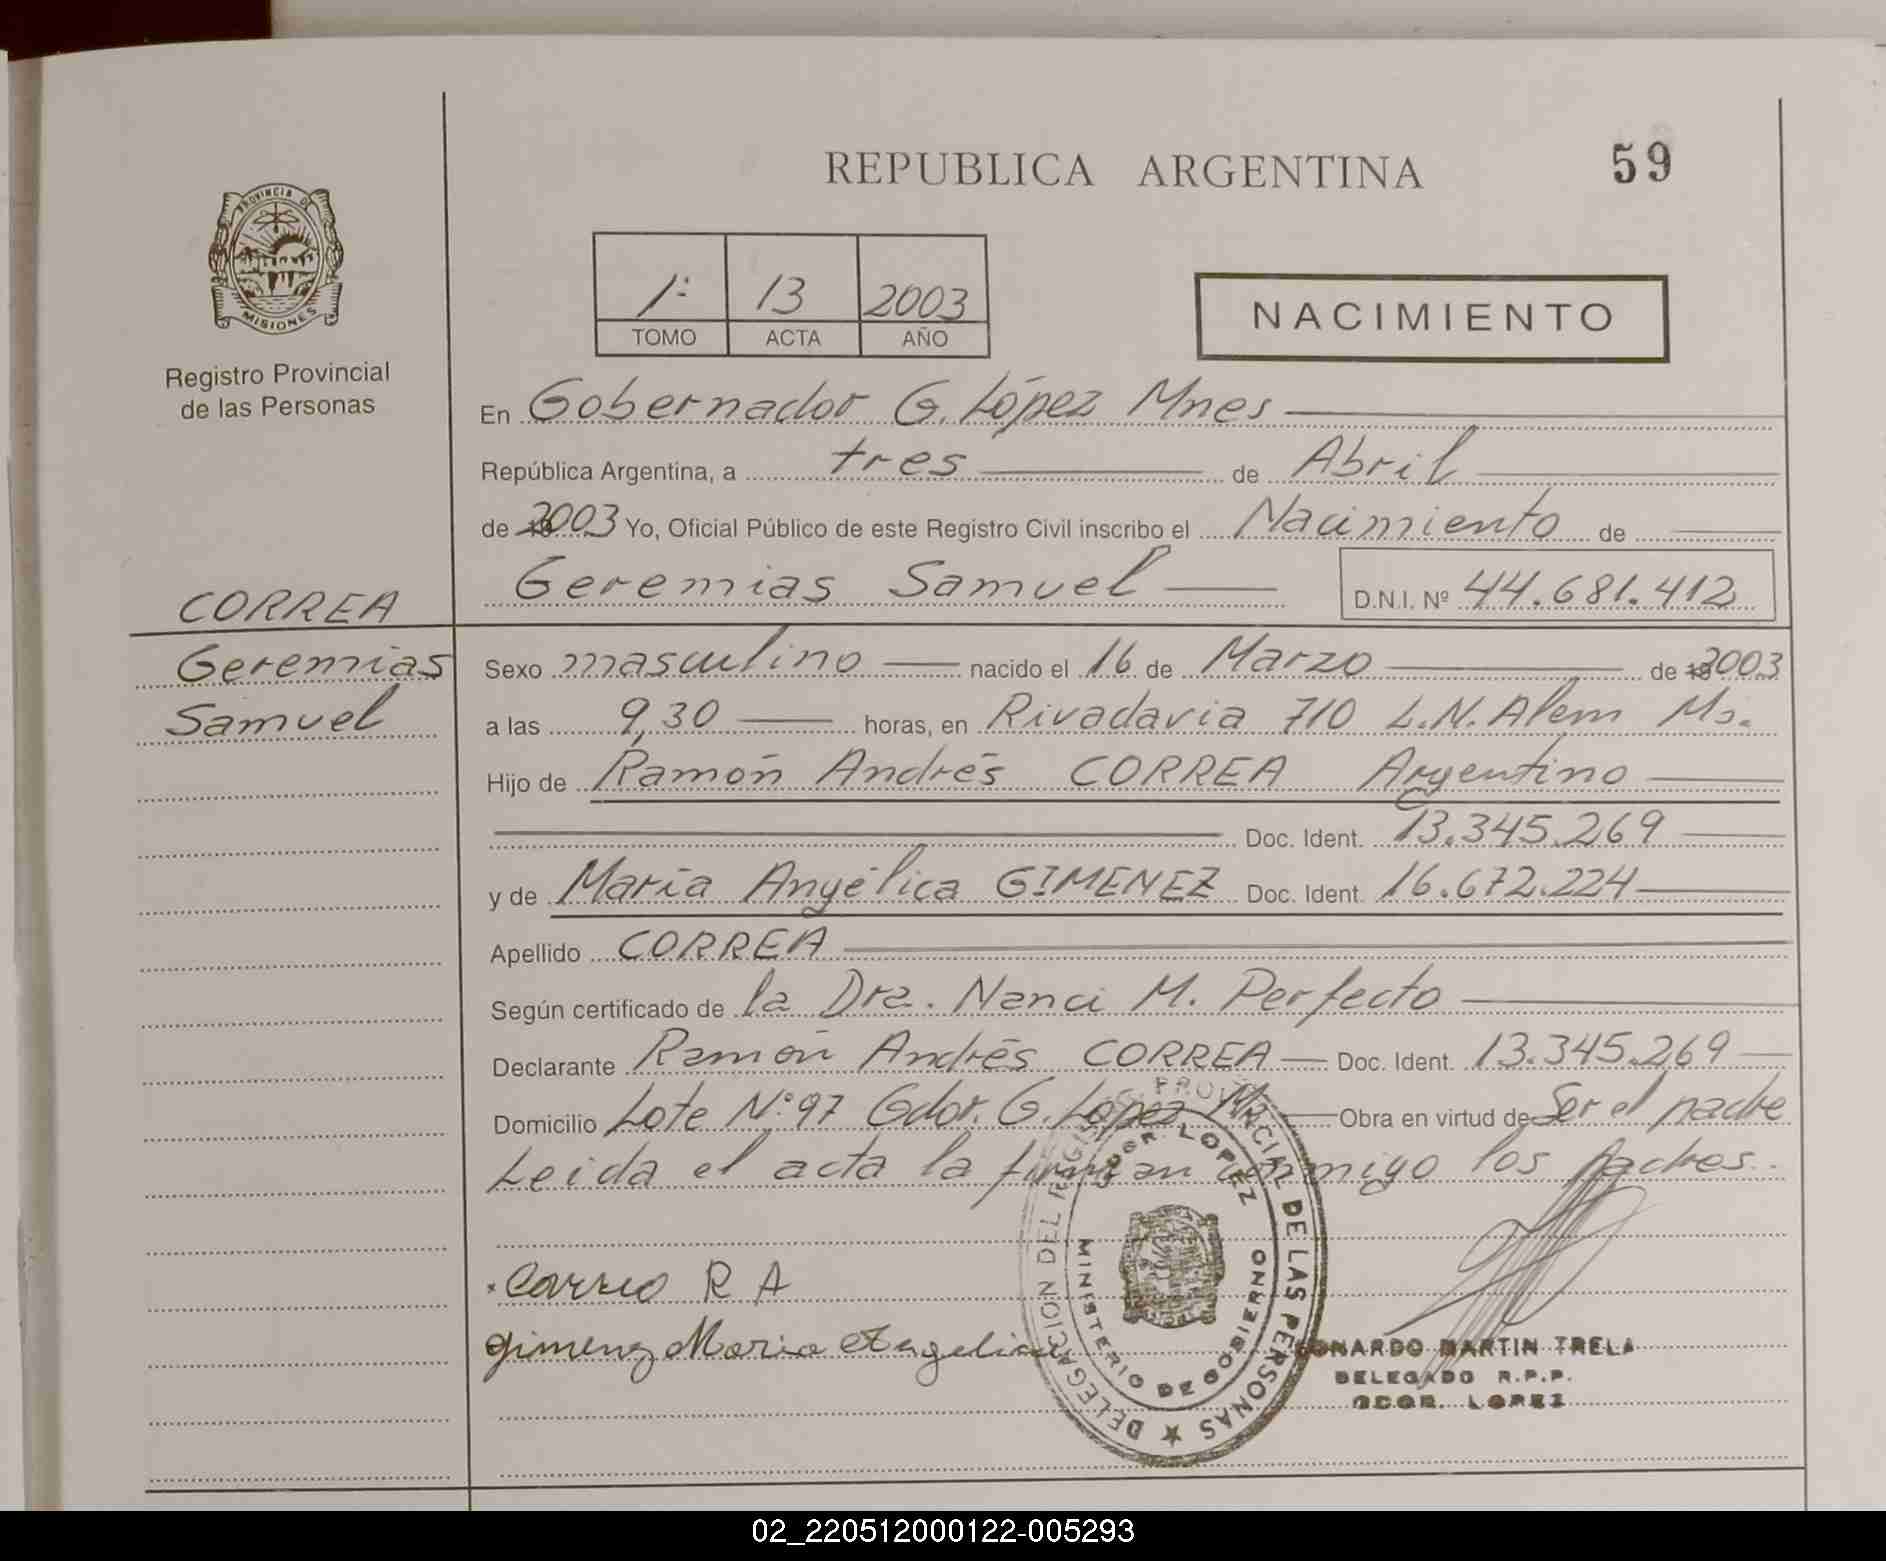 REPUBLICA ARGENTINA
59
PROVINCIA D
MISIONES
Registro Provincial
de las Personas
1º 13 2003
TOMO ACTA AÑO
NACIMIENTO
En Gobernador G. López Mnes
República Argentina, a tres de Abril
de 2003 Yo, Oficial Público de este Registro Civil inscribo el Nacimiento de
Geremias Samuel D.N.I. Nº 44.681.412
CORREA
Geremias
Samuel
Sexo masculino nacido el 16 de Marzo de 2003
a las 9,30 horas, en Rivadavia 710 L.N. Alem Ms.
Hijo de Ramón Andrés CORREA Argentino
Doc. Ident. 13.345.269
y de María Angélica GIMENEZ Doc. Ident. 16.672.224
Apellido CORREA
Según certificado de la Dra. Nanci M. Perfecto
Declarante Ramón Andrés CORREA Doc. Ident. 13.345.269
Domicilio Lote Nº 97 Gdor. G. Lopez M. Obra en virtud de Ser el padre
Leida el acta la firman conmigo los padres.
Correo R A
Gimenz Maria Angelica
DELEGACION DEL REGISTRO PROVINCIAL DE LAS PERSONAS
GDOR LOPEZ
MINISTERIO DE GOBIERNO
ONARDO MARTIN TRELA
DELEGADO R.P.P.
GDOR. LOPEZ
02_220512000122-005293